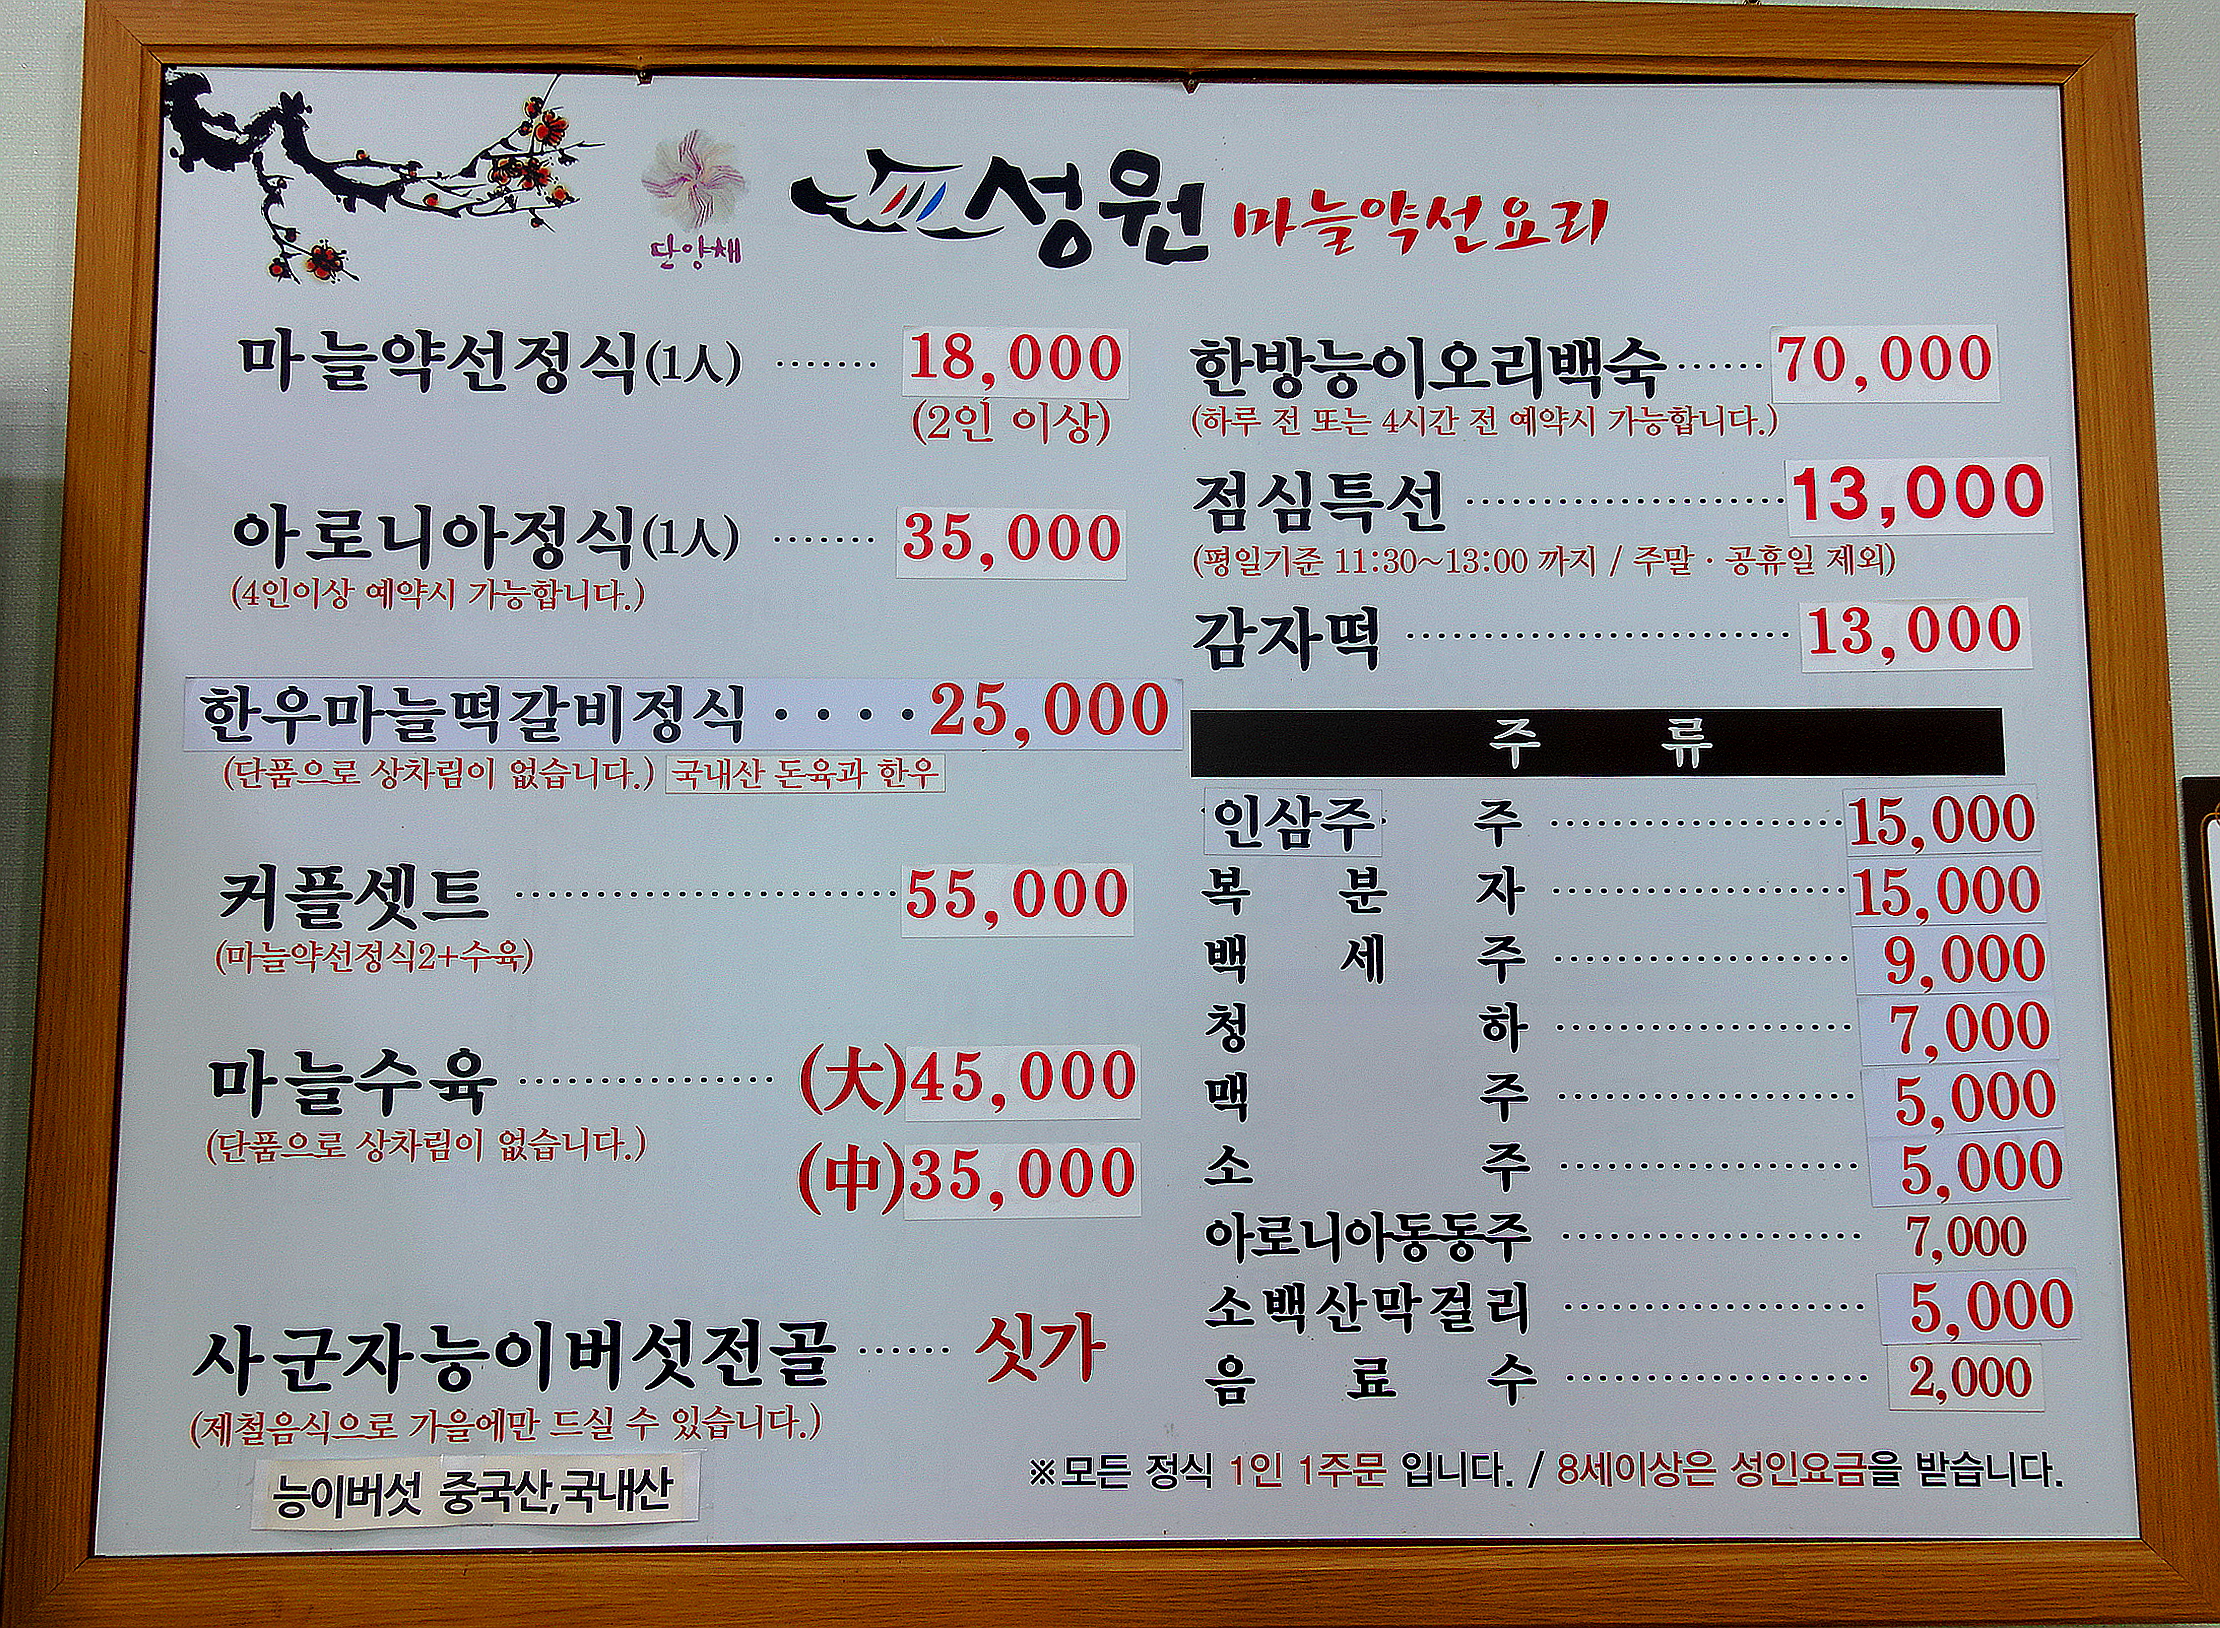 단양채
성원 마늘약선요리
마늘약선정식(1人) ······ 18,000
(2인 이상)
아로니아정식(1人) ······· 35,000
(4인이상 예약시 가능합니다.)
한우마늘떡갈비정식 ····25,000
(단품으로 상차림이 없습니다.) 국내산 돈육과 한우
커플셋트 ······················ 55,000
(마늘약선정식2+수육)
마늘수육 ··············· (大)45,000
(단품으로 상차림이 없습니다.)
(中)35,000
사군자능이버섯전골 ······ 싯가
(제철음식으로 가을에만 드실 수 있습니다.)
능이버섯 중국산,국내산
한방능이오리백숙······ 70,000
(하루 전 또는 4시간 전 예약시 가능합니다.)
점심특선 ···················· 13,000
(평일기준 11:30~13:00 까지 / 주말 · 공휴일 제외)
감자떡 ························ 13,000
주 류
인삼주 주 ··················· 15,000
복 분 자 ··················· 15,000
백 세 주 ··················· 9,000
청 하 ··················· 7,000
맥 주 ··················· 5,000
소 주 ··················· 5,000
아로니아동동주 ··················· 7,000
소백산막걸리 ··················· 5,000
음 료 수 ··················· 2,000
※모든 정식 1인 1주문 입니다. / 8세이상은 성인요금을 받습니다.